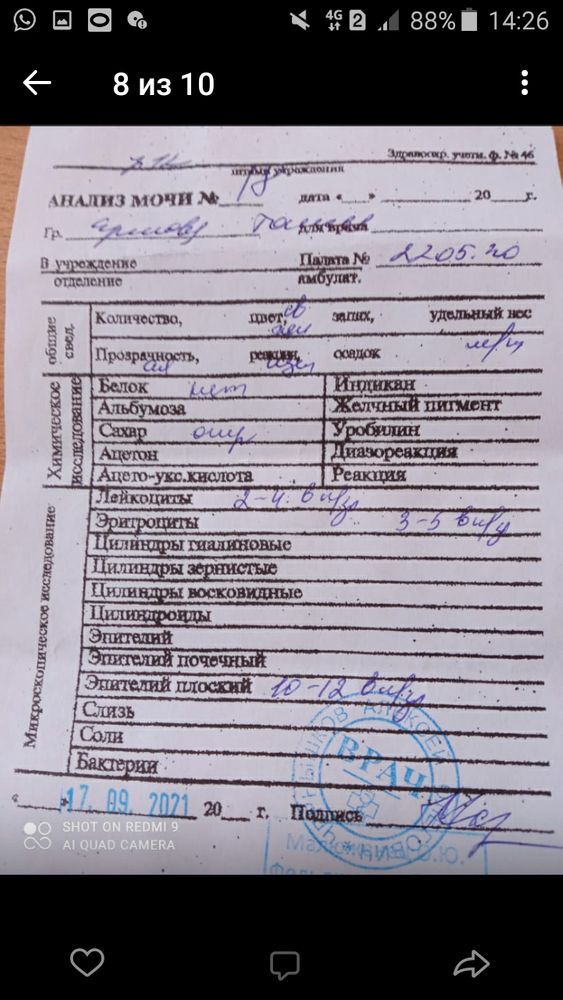 4G 2 88% 14:26
8 из 10
Здравоохр. учетн. ф. № 46
учреждения
АНАЛИЗ МОЧИ № дата «___» 20 г.
Гр. для врача
В учреждение Палата № 2205.20
отделение амбулат.
общие свед.
Количество, цвет, запах, удельный вес
Прозрачность, реакция, осадок
Химическое исследование
Белок нет Индикан
Альбумоза Желчный пигмент
Сахар отр Уробилин
Ацетон Диазореакция
Ацето-укс.кислота Реакция
Микроскопическое исследование
Лейкоциты 2-4 в п/з
Эритроциты 3-5 в п/з
Цилиндры гиалиновые
Цилиндры зернистые
Цилиндры восковидные
Цилиндроиды
Эпителий
Эпителий почечный
Эпителий плоский 10-12 в п/з
Слизь
Соли
Бактерии
АЛЕКСЕЙ
ВРАЧ
«___» 17. 09. 2021 20 г. Подпись
SHOT ON REDMI 9
AI QUAD CAMERA